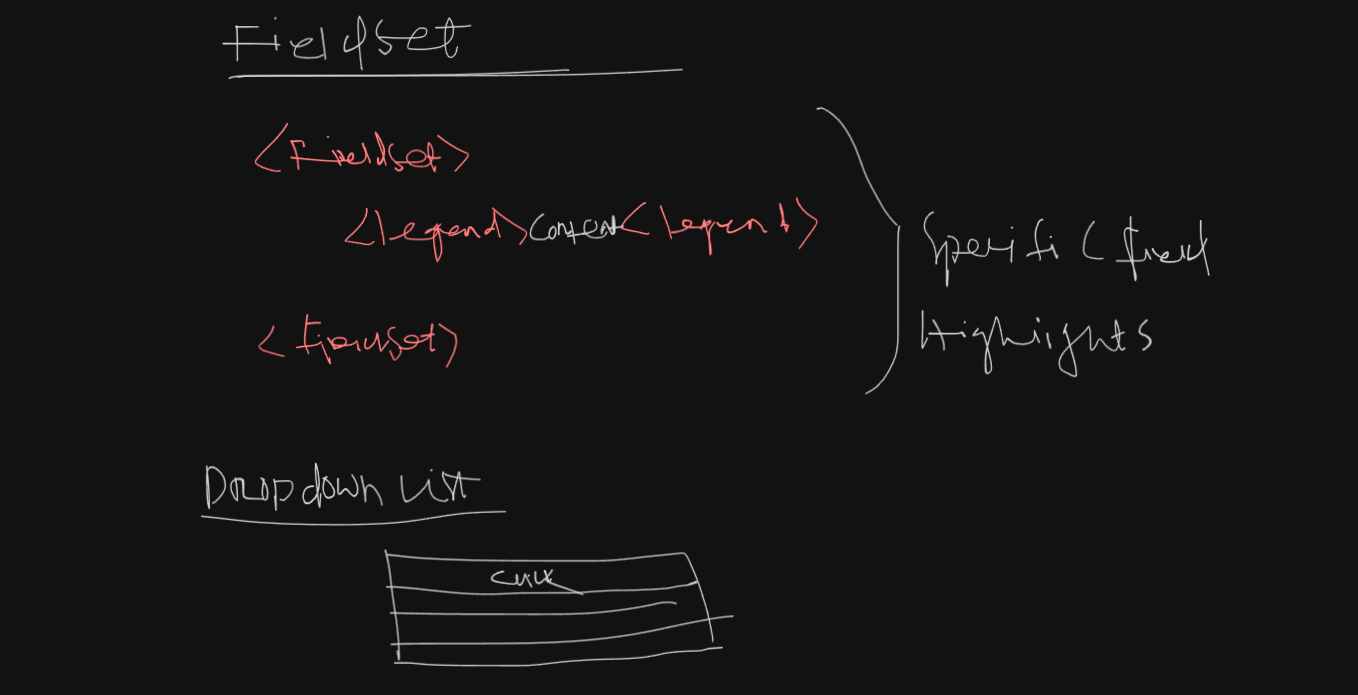 Fieldset
<Fieldset>
<legend>Content<legend>
Specific field
Highlights
<Fieldset>
Dropdown List
Click